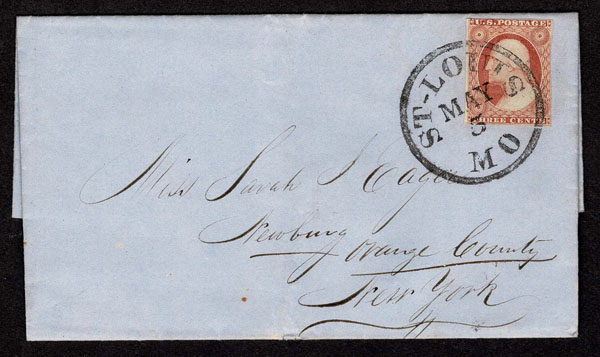 U.S. POSTAGE
THREE CENTS
ST-LOUIS
MAY
3
MO
Miss Sarah
Newburg
Orange County
New York